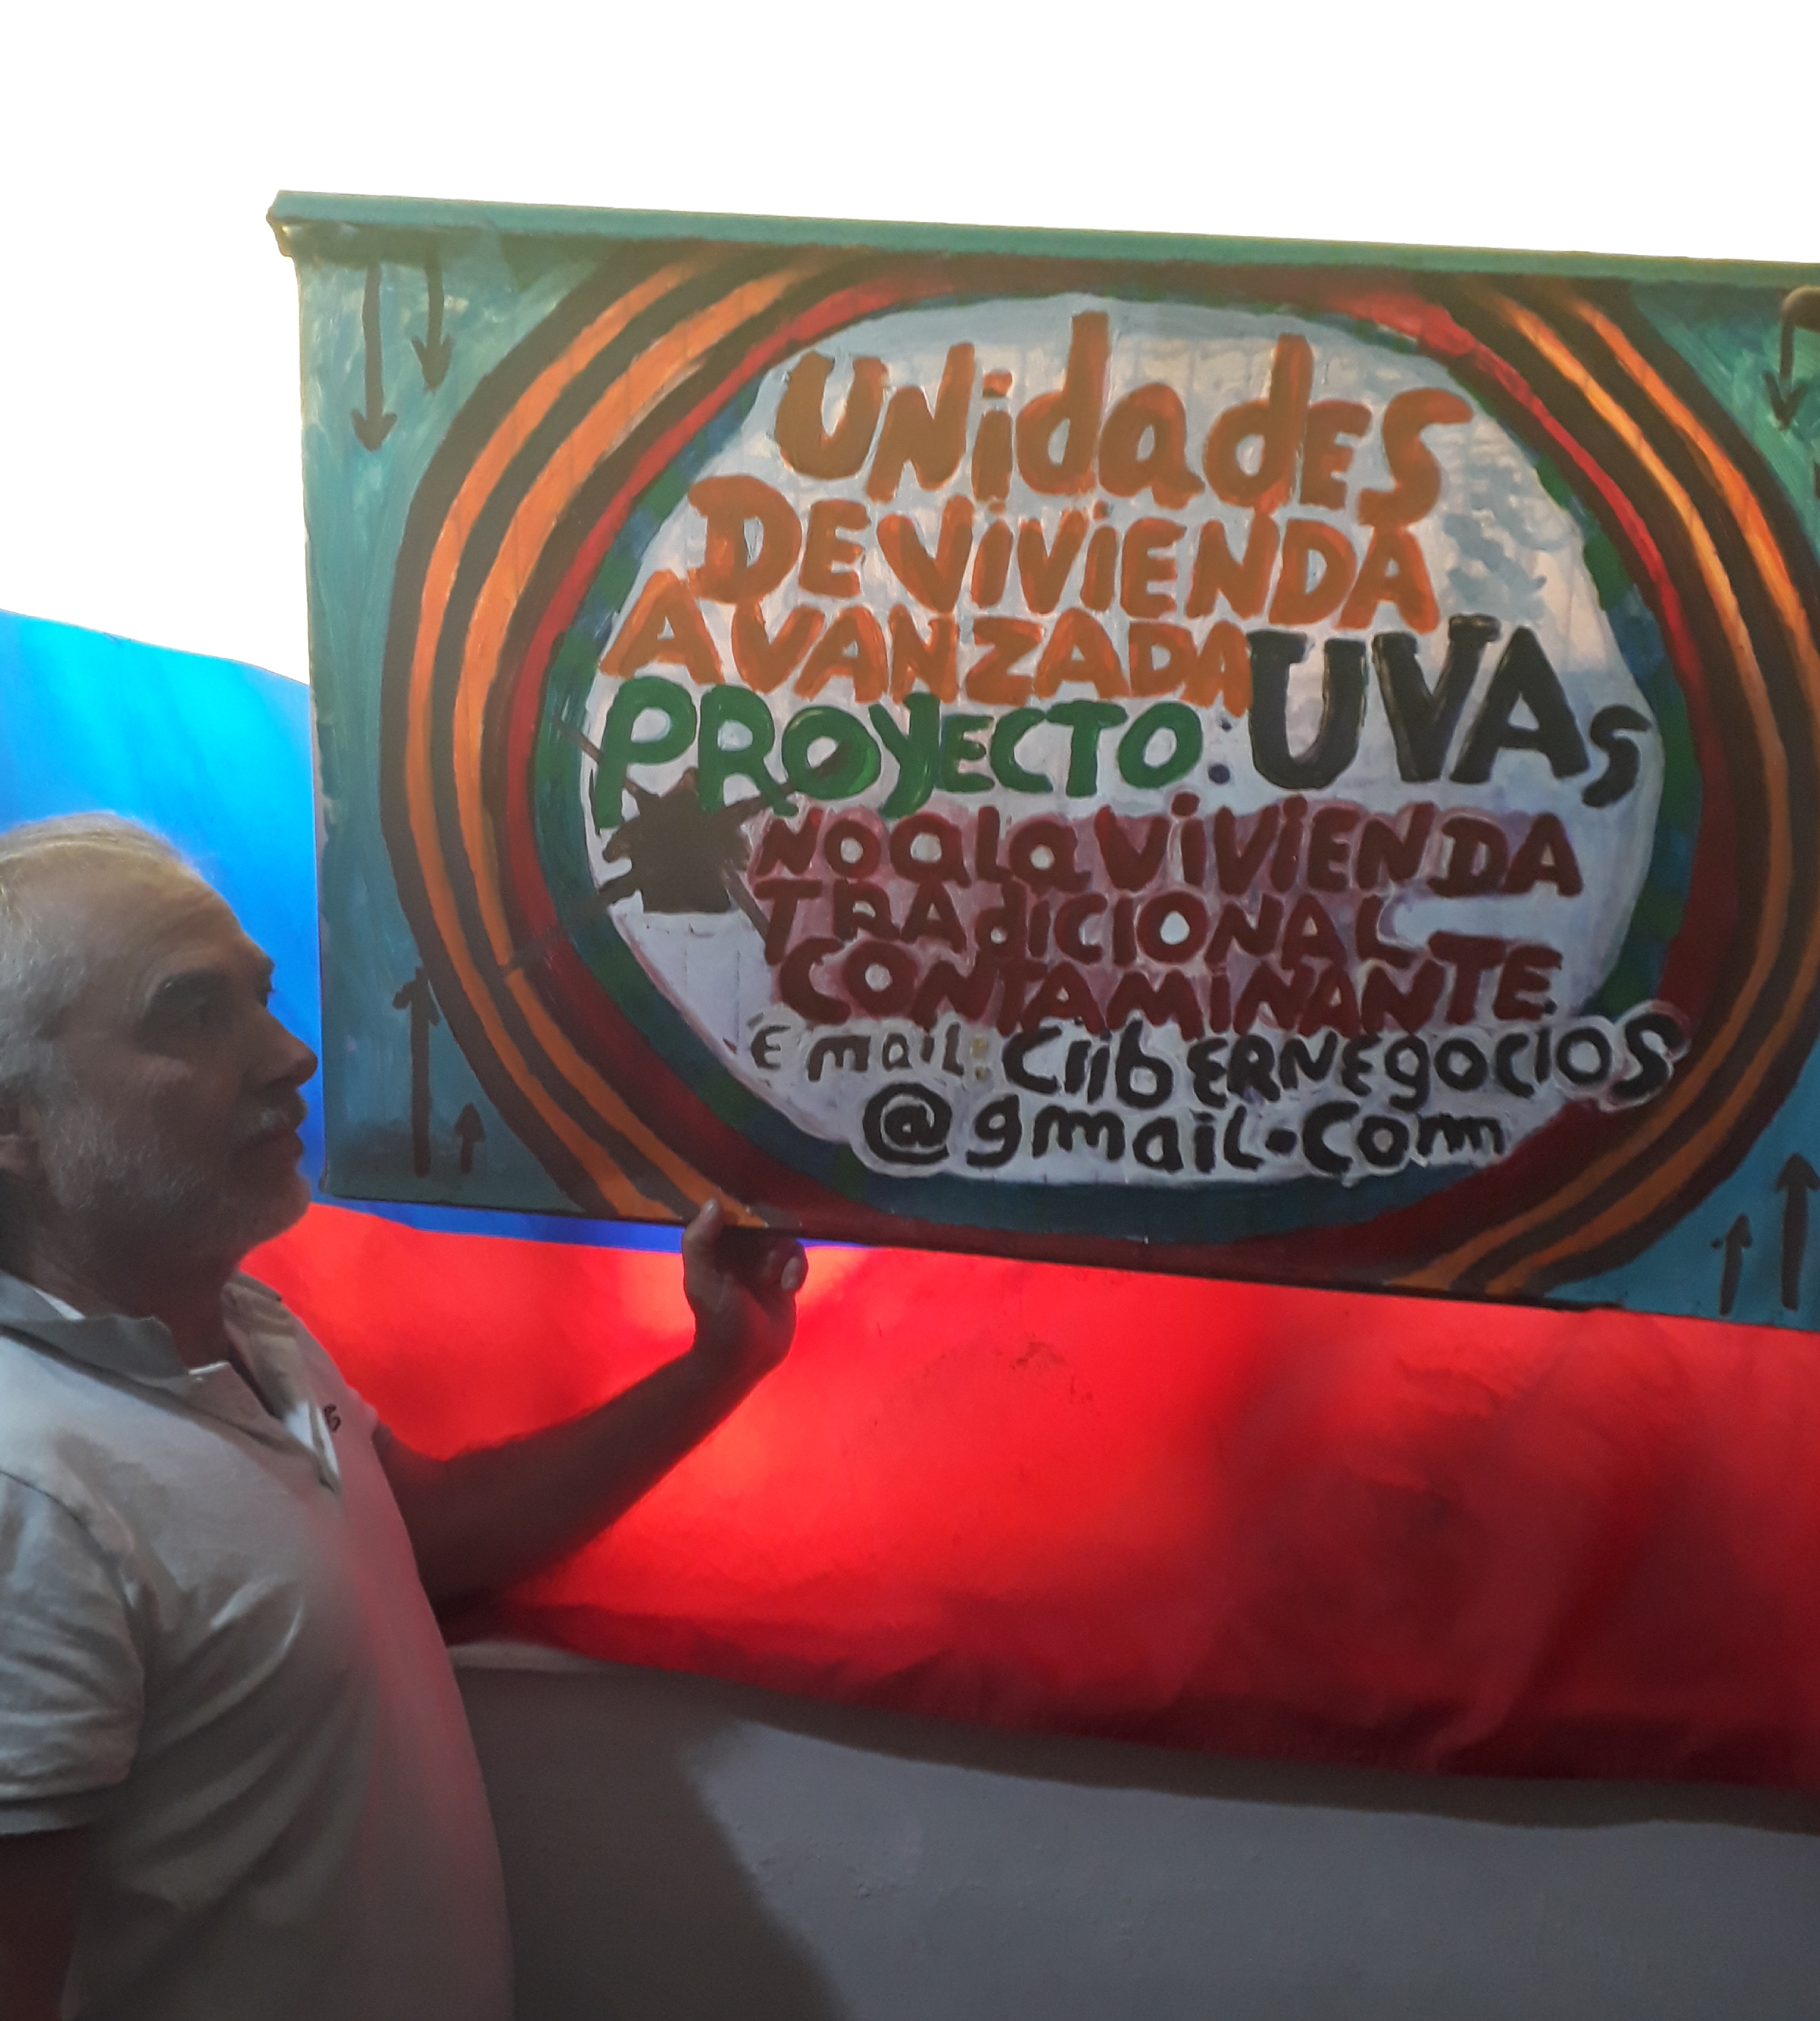 UNidadES
DE ViViENDA
AVANZADA UVAs
PROYECTO:
NO a la ViViENDA
TRAdiCIONAL
CONTAMiNANTE
Email: CiibERNEgOCiOS
@gmail.com